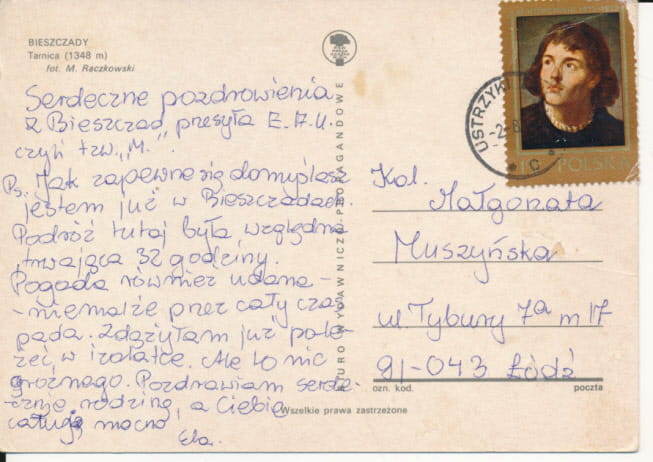 BIESZCZADY
Tarnica (1348 m)
fot. M. Raczkowski
Serdeczne pozdrowienia
z Bieszczad, przesyła E. A. U.
czyli tzw. „M."
Ps. Jak zapewne się domyślasz
jestem już w Bieszczadach.
Podróż tutaj była względna
trwająca 32 godziny.
Pogada również udana –
– niemalże przez cały czas
pada. Zdążyłam już pole-
żeć w izolatce. Ale to nic
groźnego. Pozdrawiam serde-
cznie rodzinę, a Ciebie
całuję mocno
Ela.
BIURO WYDAWNICZO-PROPAGANDOWE
Wszelkie prawa zastrzeżone
USTRZYKI
-2-8
C
POLSKA
Kol.
Małgorzata
Muszyńska
ul. Tybury 7a m 17
91-043 Łódź
ozn. kod. poczta